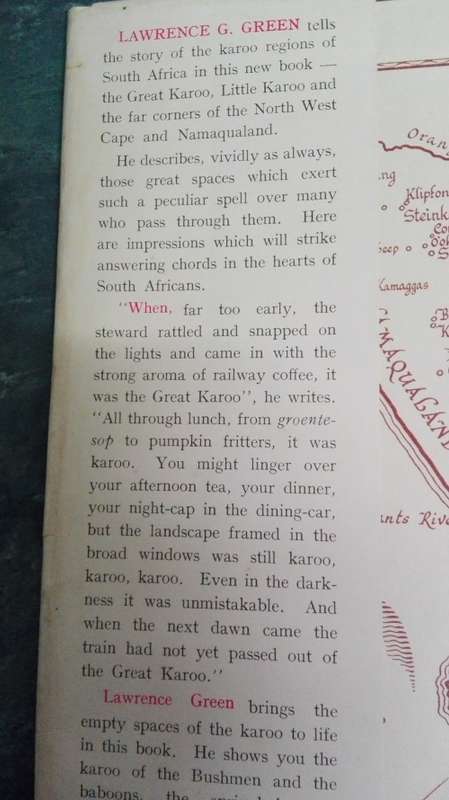 LAWRENCE G. GREEN tells
the story of the karoo regions of
South Africa in this new book —
the Great Karoo, Little Karoo and
the far corners of the North West
Cape and Namaqualand.
He describes, vividly as always,
those great spaces which exert
such a peculiar spell over many
who pass through them. Here
are impressions which will strike
answering chords in the hearts of
South Africans.
"When, far too early, the
steward rattled and snapped on
the lights and came in with the
strong aroma of railway coffee, it
was the Great Karoo", he writes.
"All through lunch, from groente-
sop to pumpkin fritters, it was
karoo. You might linger over
your afternoon tea, your dinner,
your night-cap in the dining-car,
but the landscape framed in the
broad windows was still karoo,
karoo, karoo. Even in the dark-
ness it was unmistakable. And
when the next dawn came the
train had not yet passed out of
the Great Karoo."
Lawrence Green brings the
empty spaces of the karoo to life
in this book. He shows you the
karoo of the Bushmen and the
baboons, the
Oran
ng
Klipfon
Steink
Kamaggas
MAQUALAND
ants Rive